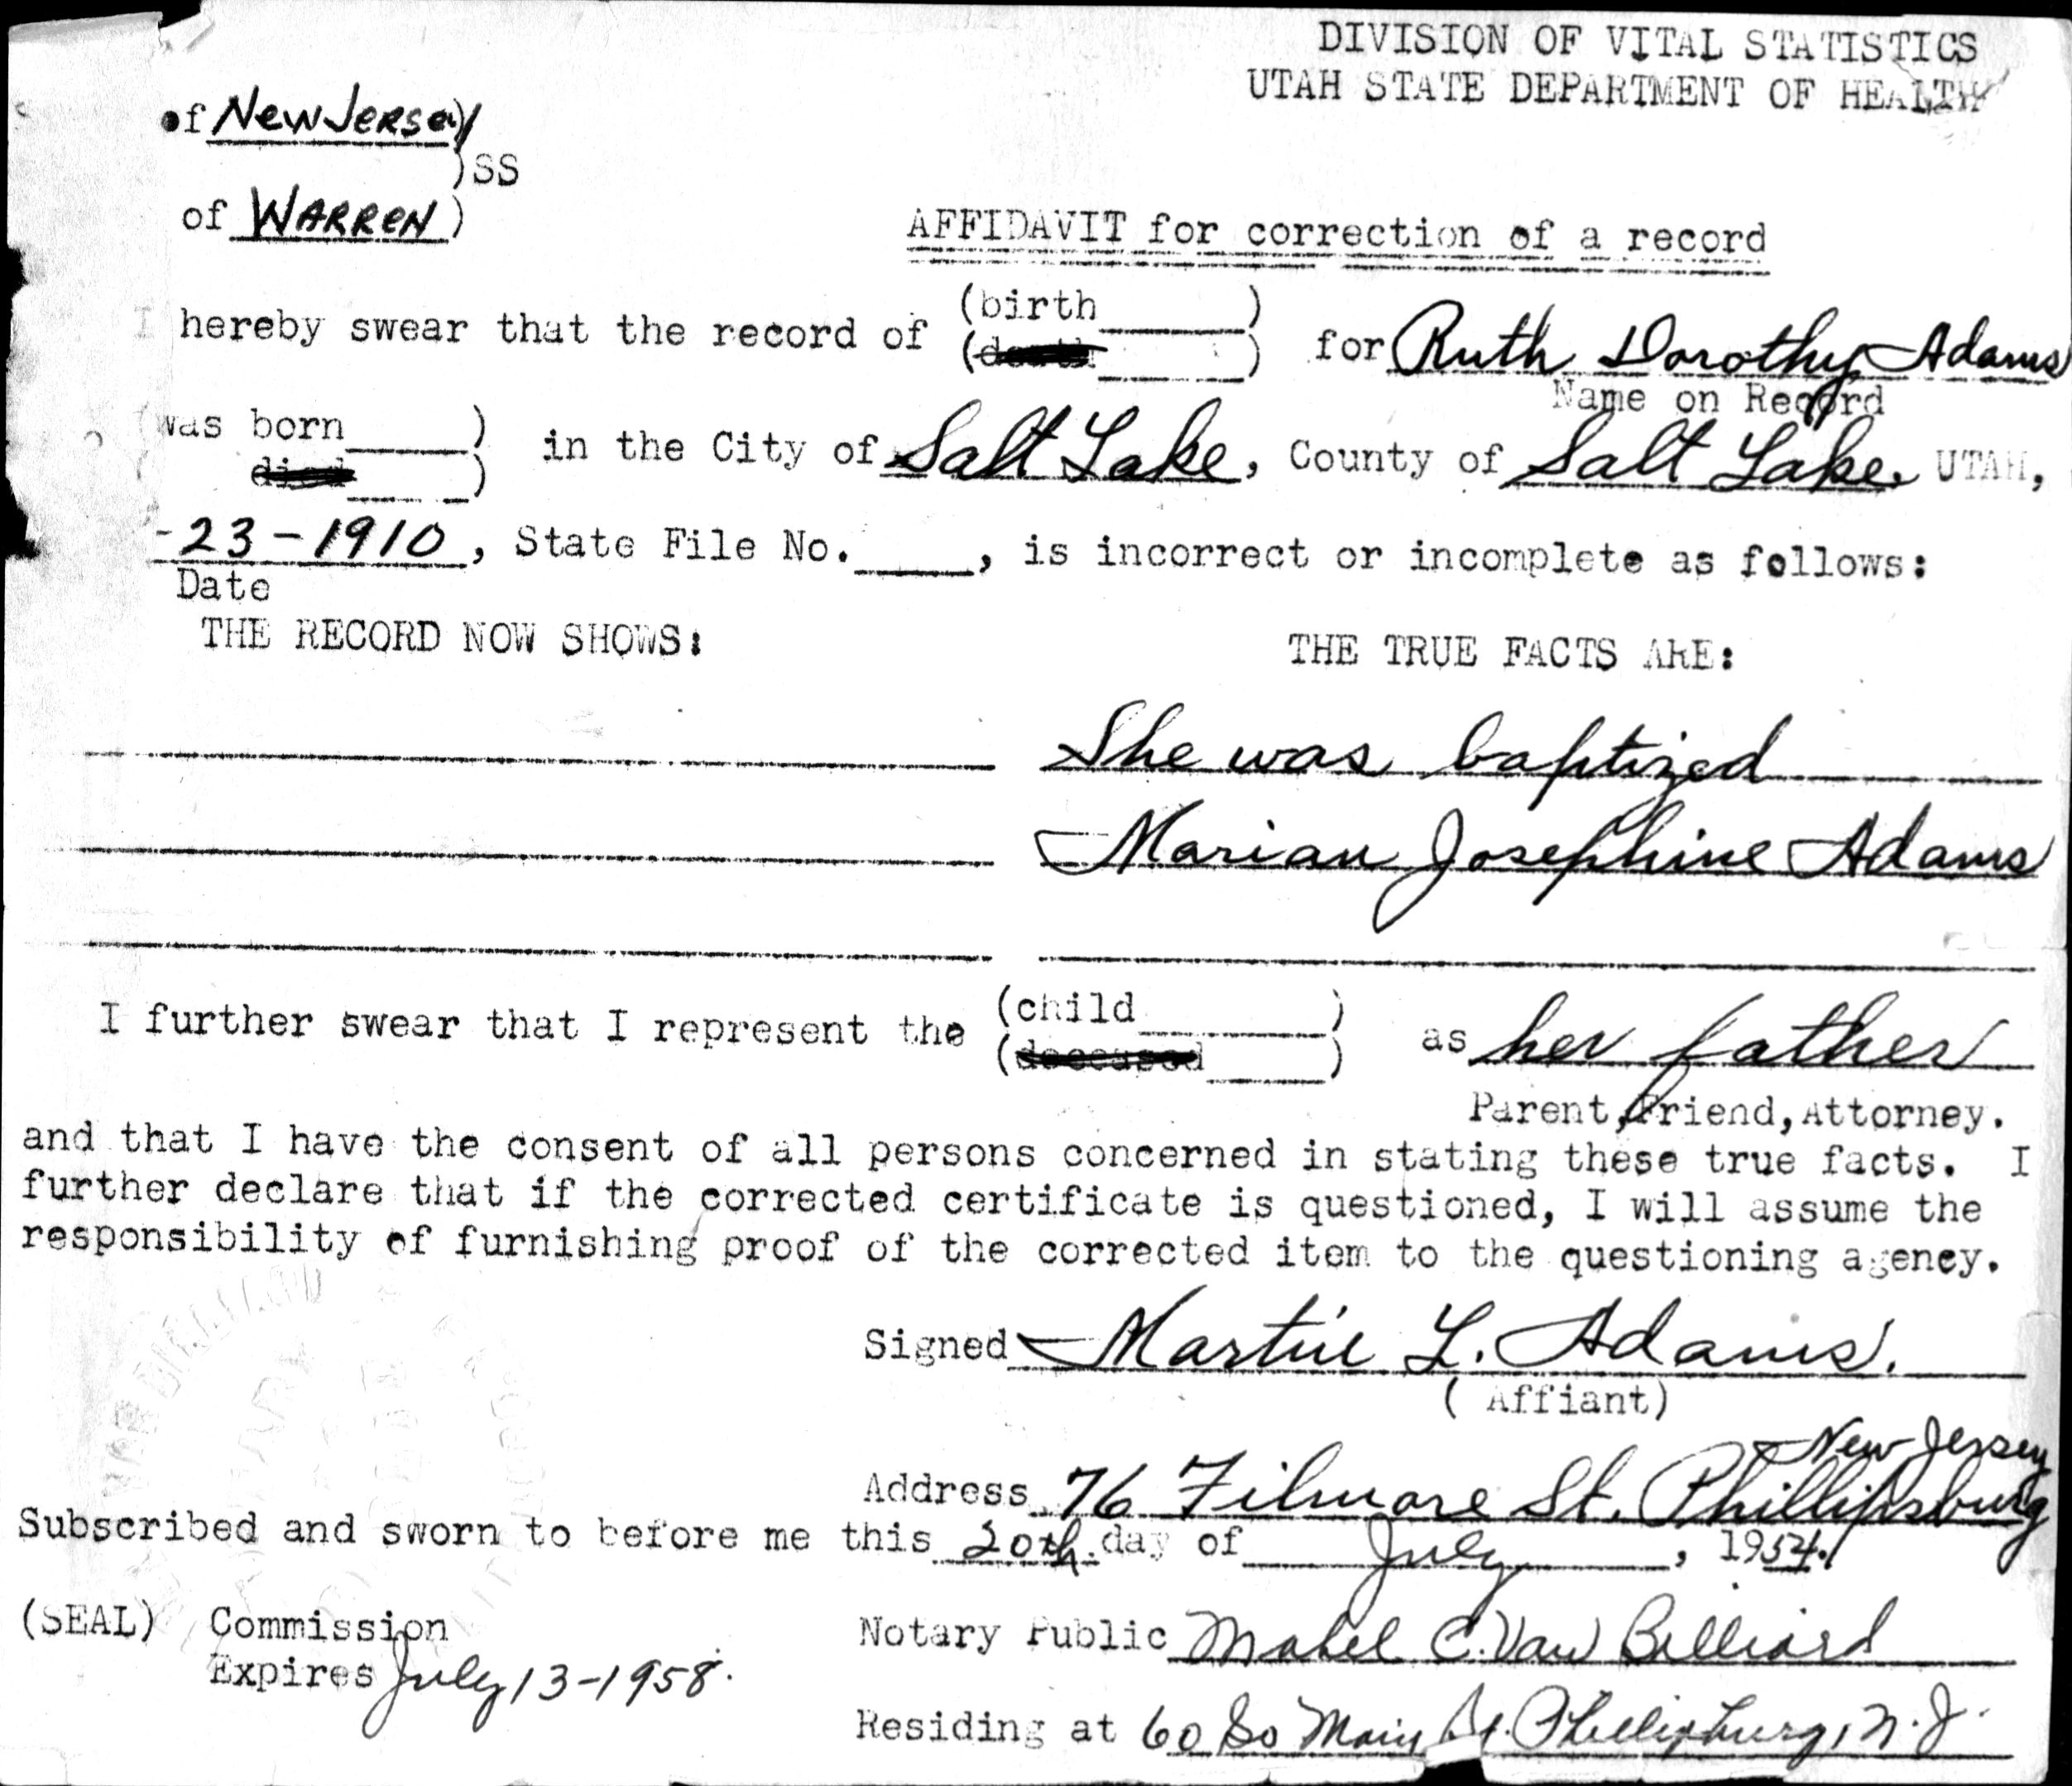 DIVISION OF VITAL STATISTICS
UTAH STATE DEPARTMENT OF HEALTH
of New Jersey)
)SS
of WARREN)
AFFIDAVIT for correction of a record
I hereby swear that the record of (birth_____) for Ruth Dorothy Adams
(death_____)
Name on Record
(was born_____) in the City of Salt Lake, County of Salt Lake, UTAH,
died_____)
-23-1910, State File No._____, is incorrect or incomplete as follows:
Date
THE RECORD NOW SHOWS: THE TRUE FACTS ARE:
She was baptized
Marian Josephine Adams
I further swear that I represent the (child_____) as her father
(deceased_____)
Parent, Friend, Attorney.
and that I have the consent of all persons concerned in stating these true facts. I
further declare that if the corrected certificate is questioned, I will assume the
responsibility of furnishing proof of the corrected item to the questioning agency.
Signed Martin L. Adams.
( Affiant)
New Jersey
Address 76 Filmore St. Phillipsburg
Subscribed and sworn to before me this 20th day of July, 1954.
(SEAL) Commission Notary Public Mabel C. Van Billiard
Expires July 13-1958.
Residing at 60 So Main St. Phillipsburg, N.J.